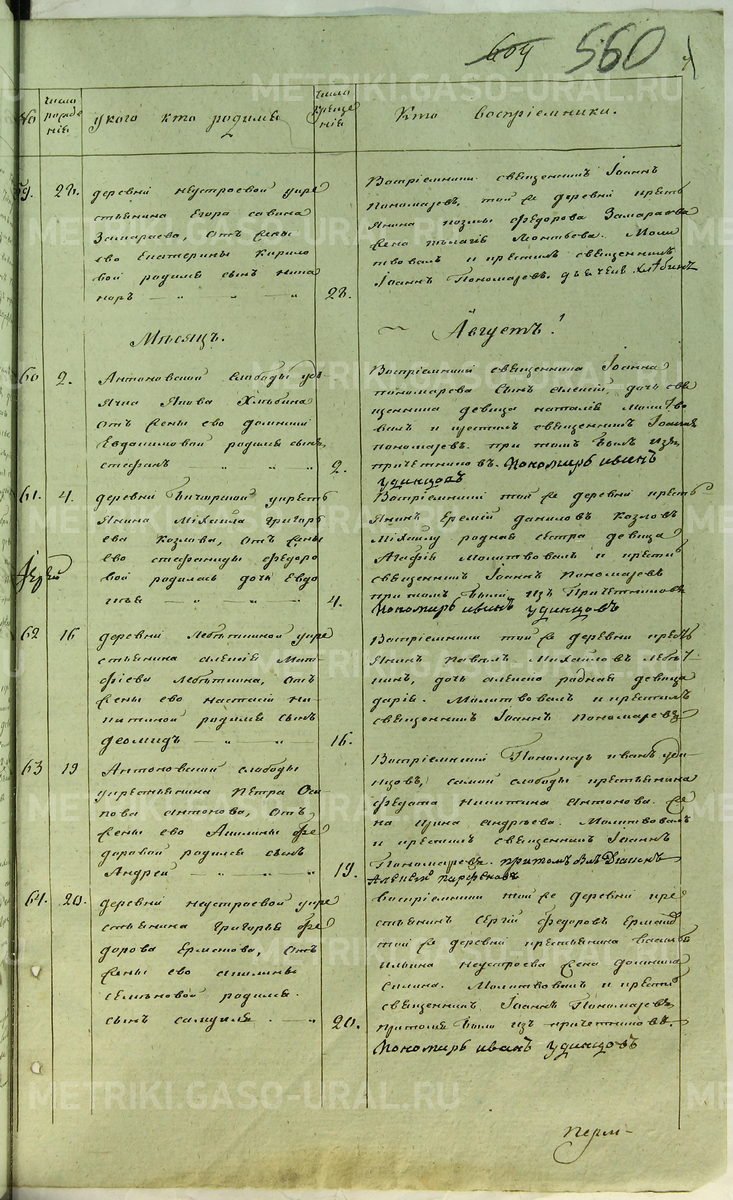 604 560
№ число рождения у кого кто родился число крещения Кто восприемники.
59. 28. деревни Неустроевой у кре
стьянина Егора Савина
Замараева, отъ жены
ево Екатерины Кирило
вой родился сынъ Ника
норъ 28.
Восприемники священникъ Іоаннъ
Пономаревъ, той же деревни кресть
янина Козмы Федорова Замараева
жена Пелагія Леонтьева. Моли
твовалъ и крестилъ священникъ
Іоаннъ Пономаревъ.
Месяцъ. Августъ.
60 2. Антоновской слободы у дь
ячка Якова Хлыбина
отъ жены ево Домники
Евдокимовой родился сынъ
Стефанъ 2.
Восприемники священника Іоанна
Пономарева сынъ Алексій, дочь свя
щенника девица Наталія Молитво
валъ и крестилъ священникъ Іоаннъ
Пономаревъ. при томъ былъ изъ
причетниковъ. Пономарь Иванъ
Удинцовъ
61. 4. деревни у кресть
янина Михаила Григорь
ева Козлова, отъ жены
ево Стефаниды Федоро
вой родилась дочь Евдо
кія 4.
Восприемники той же деревни кресть
янинъ Еремей Даниловъ Козловъ
Михайлу родная сестра девица
Агафія Молитвовалъ и крестилъ
священникъ Іоаннъ Пономаревъ
при томъ были изъ причетниковъ
Пономарь Иванъ Удинцовъ
62 16 деревни у кре
стьянина Алексія Мат
фіева отъ
жены ево Настасіи Ни
китиной родился сынъ
Деомидъ 16.
Восприемники той же деревни кресть
янинъ Павелъ Михайловъ
дочь Алексію родная девица
Дарія. Молитвовалъ и крестилъ
священникъ Іоаннъ Пономаревъ
63 19 Антоновской слободы
у крестьянина Петра Оси
пова Антонова, отъ
жены ево Акилины Фе
доровой родился сынъ
Андрей 19.
Восприемники Пономарь Иванъ Уди
нцовъ, самой слободы крестьянина
Федота Никитина Антонова же
на Ирина Андреева. Молитвовалъ
и крестилъ священникъ Іоаннъ
Пономаревъ. притомъ былъ Діаконъ
Алексей Парфеновъ
64. 20. деревни Неустроевой у кре
стьянина Григорья Фе
дорова Ермакова, отъ
жены ево Акилины
Семеновой родился
сынъ Самуилъ 20.
Восприемники той же деревни кре
стьянинъ Сергій Федоровъ Ермаковъ
той же деревни крестьянина Василья
Ильина Неустроева жена Домника
Силина. Молитвовалъ и крестилъ
священникъ Іоаннъ Пономаревъ
притомъ были изъ причетниковъ.
Пономарь Иванъ Удинцовъ
METRIKI.GASO-URAL.RU